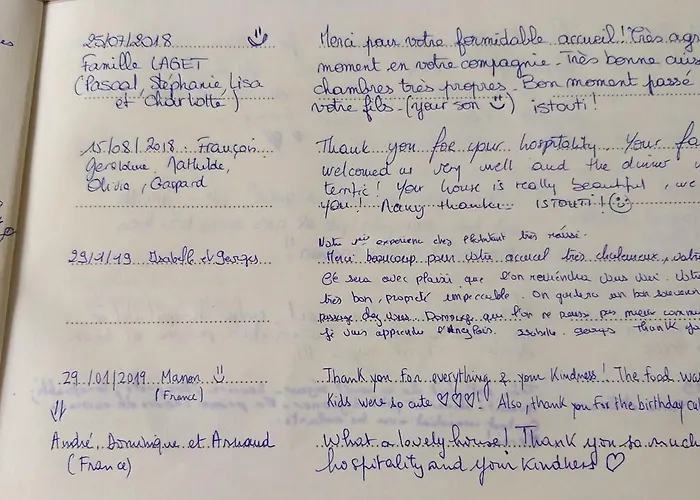 25/07/2018
Famille LAGET
(Pascal, Stéphanie, Lisa
et Charlotte)
Merci pour votre formidable accueil! Très
moment en votre compagnie. Très bonne
chambres très propres. Bon moment passé
votre fils. (your son ) istouti!
15/08/2018 François
Géraldine, Mathilde,
Olivia, Gaspard
Thank you for your hospitality. Your
welcomed us very well and the dinner
terrific! Your house is really beautiful, we
you! Many thanks ISTOUTI!
29/1/19 Isabelle et Georges
Votre expérience chez l'habitant très réussi.
Merci beaucoup pour votre accueil très chaleureux,
Ce sera avec plaisir que l'on reviendra vous voir.
très bon, propreté impeccable. On gardera un bon souvenir
passage chez vous. Dommage que l'on ne puisse pas mieux
je vais apprendre l'Anglais. Isabelle. Georges Thank
29/01/2019 Manon
(France)
Thank you for everything & your Kindness! The food was
Kids were so cute ♡♡♡! Also, thank you for the birthday
André, Dominique et Arnaud
(France)
What a lovely house! Thank you so much
hospitality and your kindness ♡